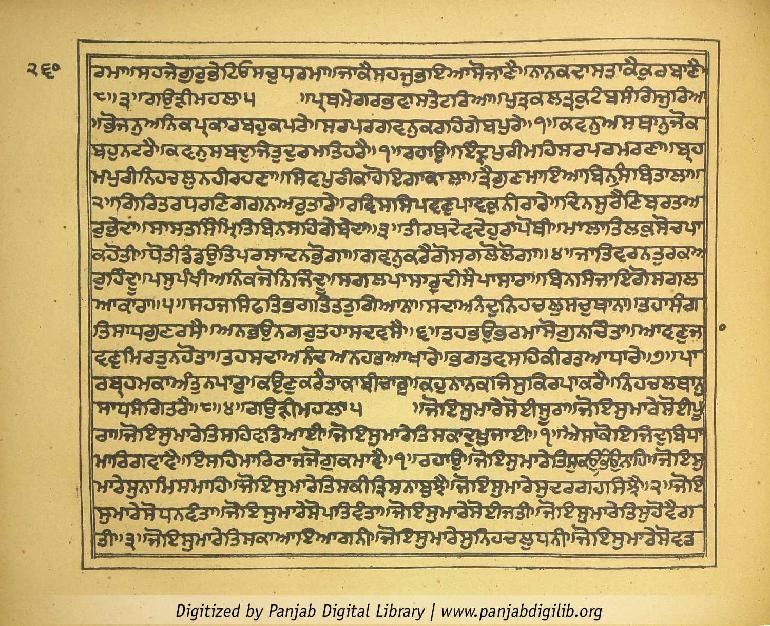 ੨੬੦
ਰਮਾ॥ਸਹਜੇਗੁਰਭੇਟਿਓਸਚੁਧਰਮਾ॥ਜਾਕੈਸਹਜੁਭਾਇਆਸੋਜਾਣੈ॥ਨਾਨਕਦਾਸਤਾਕੈਕੁਰਬਾਣੈ
॥੮॥੩॥ਗਉੜੀਮਹਲਾ੫ ॥ਪ੍ਰਥਮੇਗਰਭਵਾਸਤੇਟਰਿਆ॥ਪੁਤ੍ਰਕਲਤ੍ਰਕੁਟੰਬਸੰਗਿਜੁਰਿਆ
॥ਭੋਜਨੁਅਨਿਕਪ੍ਰਕਾਰਬਹੁਕਪਰੇ॥ਸਰਪਰਗਵਨੁਕਰਹਿਗੇਬਪੁਰੇ॥੧॥ਕਵਨੁਅਸਥਾਨੁਜੋਕ
ਬਹੁਨਟਰੈ॥ਕਵਨੁਸਬਦੁਜਿਤੁਦੁਰਮਤਿਹਰੈ॥੧॥ਰਹਾਉ॥ਇੰਦ੍ਰਪੁਰੀਮਹਿਸਰਪਰਮਰਣਾ॥ਬ੍ਰਹ
ਮਪੁਰੀਨਿਹਚਲੁਨਹੀਰਹਣਾ॥ਸਿਵਪੁਰੀਕਾਹੋਇਗਾਕਾਲਾ॥ਤ੍ਰੈਗੁਣਮਾਇਆਬਿਨਸਿਬਿਤਾਲਾ॥
੨॥ਗਿਰਿਤਰਧਰਣਿਗਗਨਅਰੁਤਾਰੇ॥ਰਵਿਸਸਿਪਵਣੁਪਾਵਕੁਨੀਰਾਰੇ॥ਦਿਨਸੁਰੈਣਿਬਰਤਅ
ਰੁਭੇਦਾ॥ਸਾਸਤਸਿੰਮ੍ਰਿਤਿਬਿਨਸਹਿਗੇਬੇਦਾ॥੩॥ਤੀਰਥਦੇਵਦੇਹੁਰਾਪੋਥੀ॥ਮਾਲਾਤਿਲਕੁਸੋਚਪਾ
ਕਹੋਤੀ॥ਧੋਤੀਡੰਡਉਤਿਪਰਸਾਦਨਭੋਗਾ॥ਗਵਨੁਕਰੈਗੋਸਗਲੋਲੋਗਾ॥੪॥ਜਾਤਿਵਰਨਤੁਰਕਅ
ਰੁਹਿੰਦੂ॥ਪਸੁਪੰਖੀਅਨਿਕਜੋਨਿਜਿੰਦੂ॥ਸਗਲਪਾਸਾਰੁਦੀਸੈਪਾਸਾਰਾ॥ਬਿਨਸਿਜਾਇਗੋਸਗਲ
ਆਕਾਰਾ॥੫॥ਸਹਜਸਿਫਤਿਭਗਤਿਤਤੁਗਿਆਨਾ॥ਸਦਾਅਨੰਦੁਨਿਹਚਲੁਸਚੁਥਾਨਾ॥ਤਹਾਸੰਗ
ਤਿਸਾਧਗੁਣਰਸੈ॥ਅਨਭਉਨਗਰੁਤਹਾਸਦਵਸੈ॥੬॥ਤਹਭਉਭਰਮਾਸੋਗੁਨਚਿੰਤਾ॥ਆਵਣੁਜ
ਵਣੁਮਿਰਤੁਨਹੋਤਾ॥ਤਹਸਦਾਅਨੰਦਅਨਹਤਆਖਾਰੇ॥ਭਗਤਵਸਹਿਕੀਰਤਨਆਧਾਰੇ॥੭॥ਪਾ
ਰਬ੍ਰਹਮਕਾਅੰਤੁਨਪਾਰੁ॥ਕਉਣੁਕਰੈਤਾਕਾਬੀਚਾਰੁ॥ਕਹੁਨਾਨਕਜਿਸੁਕਿਰਪਾਕਰੈ॥ਨਿਹਚਲਥਾਨੁ
ਸਾਧਸੰਗਿਤਰੈ॥੮॥੪॥ਗਉੜੀਮਹਲਾ੫ ॥ਜੋਇਸੁਮਾਰੇਸੋਈਸੂਰਾ॥ਜੋਇਸੁਮਾਰੇਸੋਈਪੂ
ਰਾ॥ਜੋਇਸੁਮਾਰੇਤਿਸਹਿਵਡਿਆਈ॥ਜੋਇਸੁਮਾਰੇਤਿਸਕਾਦੁਖੁਜਾਈ॥੧॥ਐਸਾਕੋਇਜਿਦੁਬਿਧਾ
ਮਾਰਿਗਵਾਵੈ॥ਇਸਹਿਮਾਰਿਰਾਜਜੋਗੁਕਮਾਵੈ॥੧॥ਰਹਾਉ॥ਜੋਇਸੁਮਾਰੇਤਿਸਕਉਭਉਨਾਹਿ॥ਜੋਇਸੁ
ਮਾਰੇਸੁਨਾਮਿਸਮਾਹਿ॥ਜੋਇਸੁਮਾਰੇਤਿਸਕੀਤ੍ਰਿਸਨਾਬੁਝੈ॥ਜੋਇਸੁਮਾਰੇਸੁਦਰਗਹਸਿਝੈ॥੨॥ਜੋਇ
ਸੁਮਾਰੇਸੋਧਨਵੰਤਾ॥ਜੋਇਸੁਮਾਰੇਸੋਪਤਿਵੰਤਾ॥ਜੋਇਸੁਮਾਰੇਸੋਈਜਤੀ॥ਜੋਇਸੁਮਾਰੇਤਿਸੁਹੋਵੈਗ
ਤੀ॥੩॥ਜੋਇਸੁਮਾਰੇਤਿਸਕਾਆਇਆਗਨੀ॥ਜੋਇਸੁਮਾਰੇਸੁਨਿਹਚਲੁਧਨੀ॥ਜੋਇਸੁਮਾਰੇਸੋਵਡ
Digitized by Panjab Digital Library | www.panjabdigilib.org